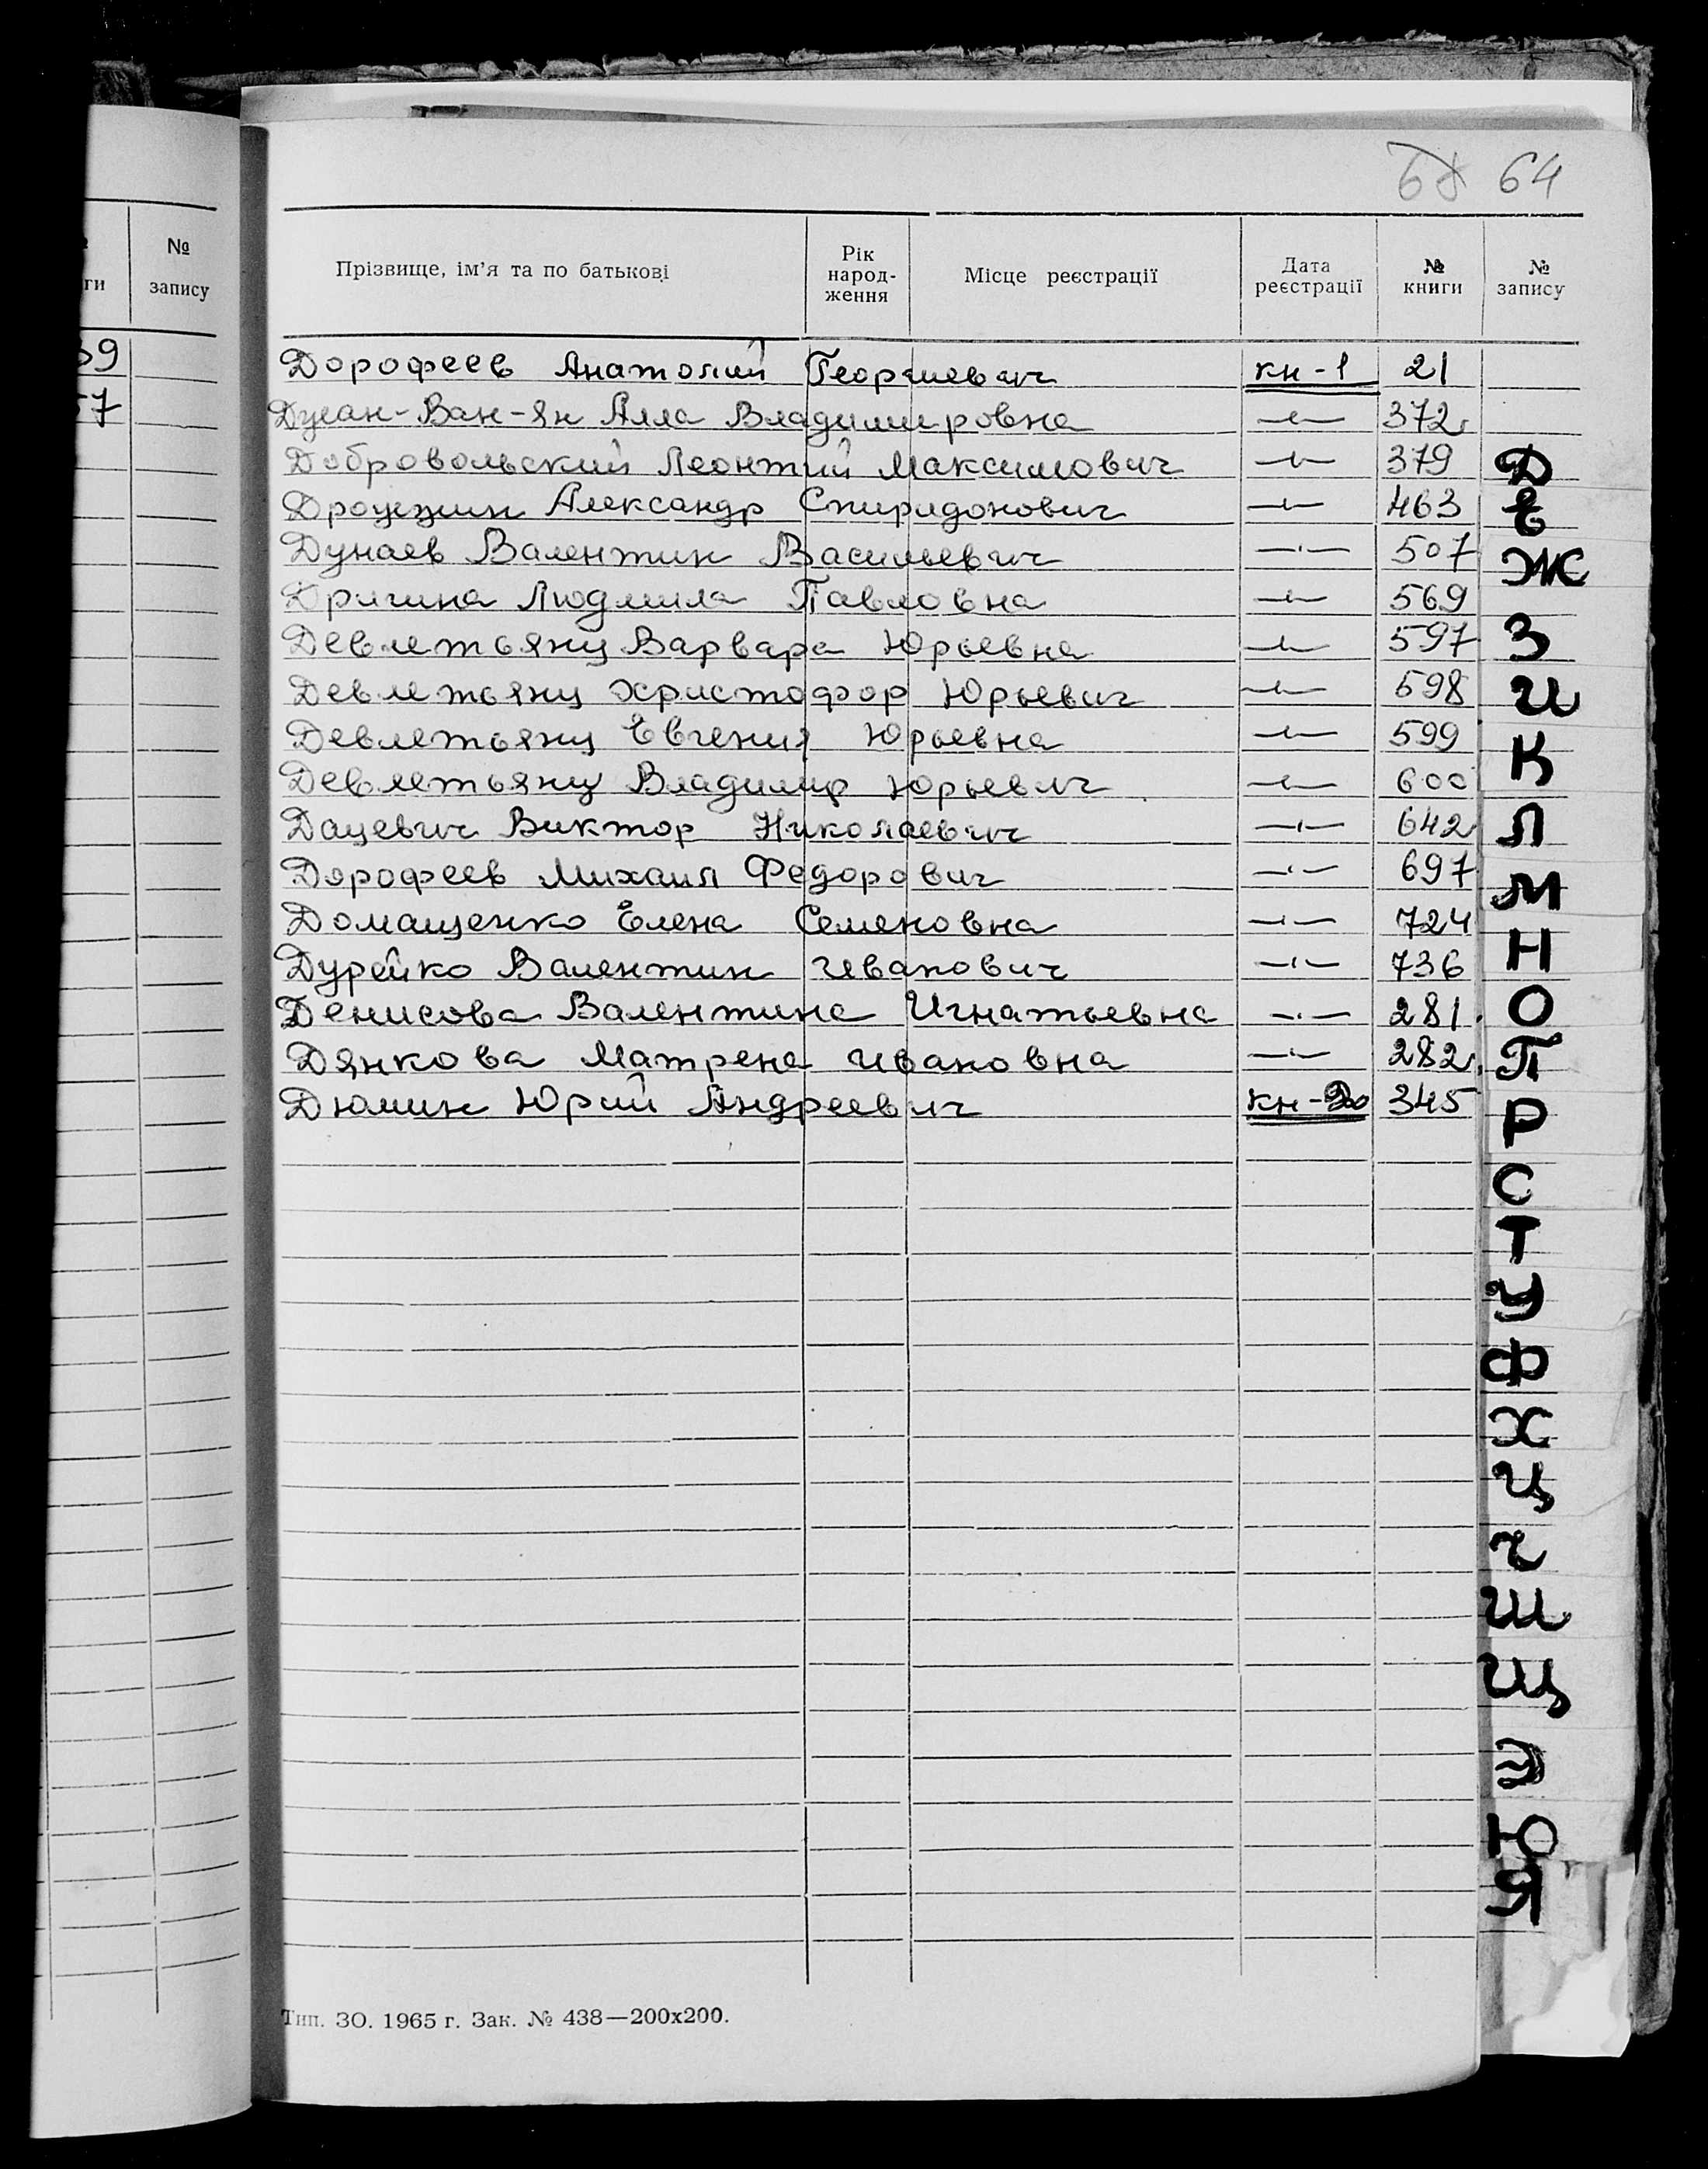 64
№
запису
ги
39
57
Прізвище, ім'я та по батькові
Рік народ-ження
Місце реєстрації
Дата реєстрації
№ книги
№ запису
Дорофеев Анатолий Георгиевич кн-1 21
Дуган-Ван-Ян Алла Владимировна —"— 372
Добровольский Леонтий Максимович —"— 379
Александр Спиридонович —"— 463
Дунаев Валентин Васильевич —"— 507
Дригина Людмила Павловна —"— 569
Девлетьянц Варвара Юрьевна —"— 597
Девлетьянц Христофор Юрьевич —"— 598
Девлетьянц Евгения Юрьевна —"— 599
Девлетьянц Владимир Юрьевич —"— 600
Дацевич Виктор Николаевич —"— 642
Дорофеев Михаил Федорович —"— 697
Домащенко Елена Семеновна —"— 724
Дурейко Валентин Иванович —"— 736
Денисова Валентина Игнатьевна —"— 281
Дянкова Матрена Ивановна —"— 282
Дюмин Юрий Андреевич кн-20 345
Д
Е
Ж
З
И
К
Л
М
Н
О
П
Р
С
Т
У
Ф
Х
Ц
Ч
Ш
Щ
Э
Ю
Я
Тип. ЗО. 1965 г. Зак. № 438—200х200.